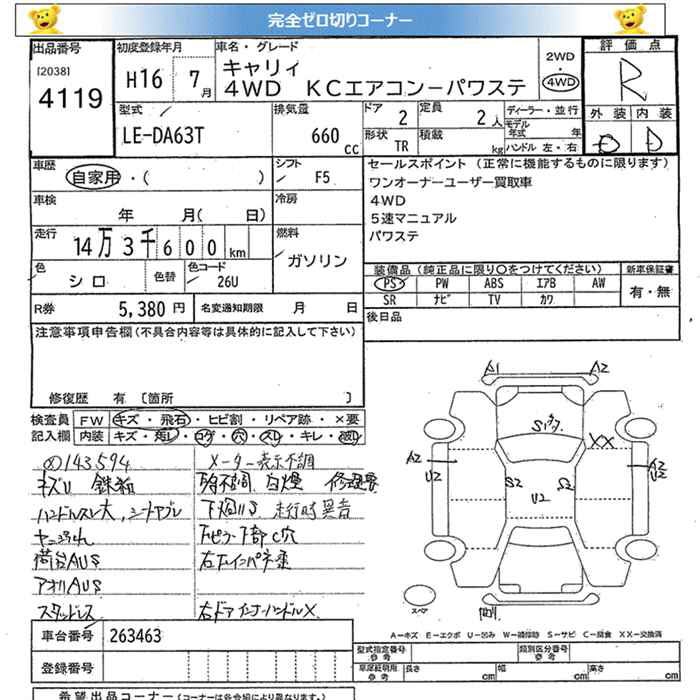 完全ゼロ切りコーナー
出品番号 初度登録年月 車名・グレード 評価点
[2038] キャリィ 2WD
4119 H16 7月 4WD KCエアコン-パワステ 4WD R
型式 排気量 ドア 2 定員 2人 ディーラー・並行 外装 内装
モデル年式 年
LE-DA63T 660cc 形状 TR 積載 kg ハンドル 左・右 D
車歴 シフト セールスポイント(正常に機能するものに限ります)
自家用・( ) F5 ワンオーナーユーザー買取車
車検 冷房 4WD
年 月( 日) 5速マニュアル
走行 燃料 パワステ
14万3千600km ガソリン
色 色替 色コード 装備品(純正品に限り○をつけてください) 新車保証書
シロ 26U PS PW ABS エアB AW 有・無
R券 5,380円 名変通知期限 月 日 SR ナビ TV カワ
注意事項申告欄(不具合内容等は具体的に記入して下さい) 後日品
修復歴 有 [箇所 ]
検査員 FW キズ・飛石・ヒビ割・リペア跡・×要
記入欄 内装 キズ・汚レ・コゲ・穴・スレ・キレ・
143594 メーター表示不調
キズU 鉄粉 白煙
ハンドルスレ大, シートヤブレ 下廻りS 走行時異音
下部C穴
荷台AUS
アオリAUS
スタッドレス 右ドアインナーハンドル×
A1 A2
XX
A2 A2
U2 S2 U2 U2
スペア
A-キズ E-エクボ U-凹み W-補修跡 S-サビ C-腐食 XX-交換済
車台番号 263463
登録番号
型式指定番号 参考 類別区分番号 参考
車庫証明用 参考 長さ cm 幅 cm 高さ cm
希望出品コーナー(コーナーは各会場により異なります。)